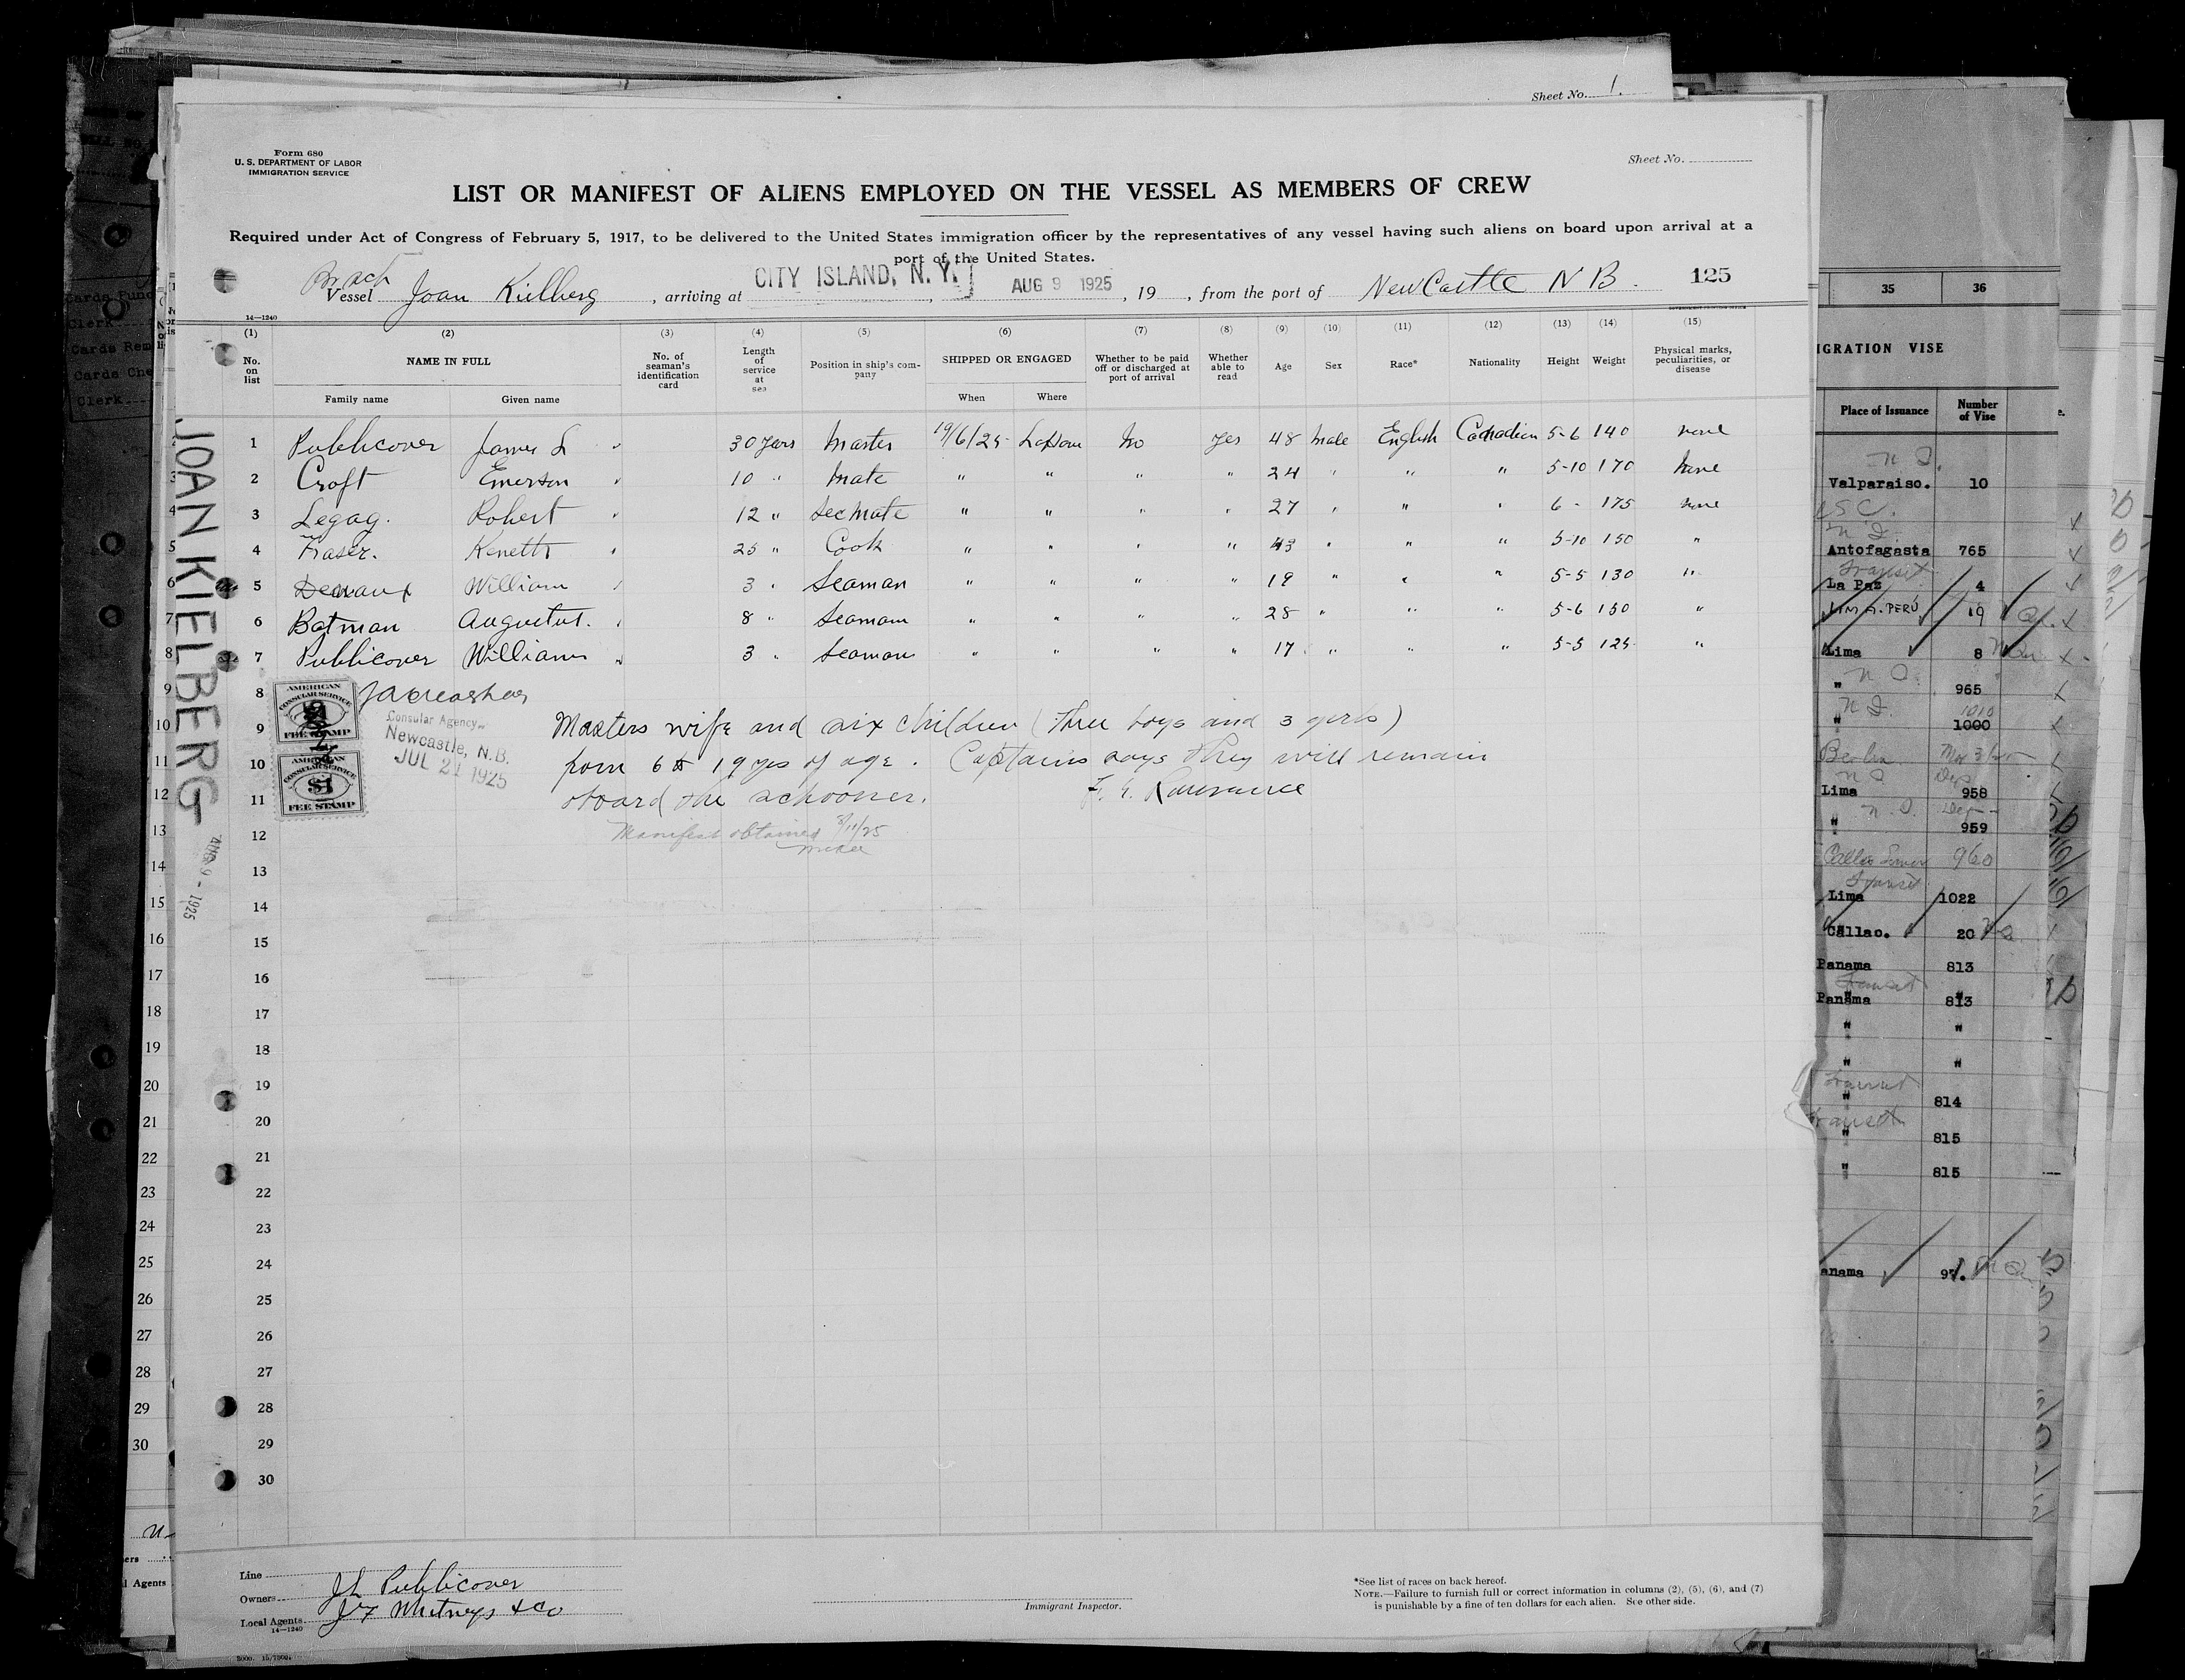 Sheet No. 1.
Form 680
U. S. DEPARTMENT OF LABOR
IMMIGRATION SERVICE
Sheet No.
LIST OR MANIFEST OF ALIENS EMPLOYED ON THE VESSEL AS MEMBERS OF CREW
Required under Act of Congress of February 5, 1917, to be delivered to the United States immigration officer by the representatives of any vessel having such aliens on board upon arrival at a
port of the United States.
Vessel Joan Kielberg, arriving at CITY ISLAND, N. Y. AUG 9 1925, 19 , from the port of NewCastle N B. 125
14—1240
(1) (2) (3) (4) (5) (6) (7) (8) (9) (10) (11) (12) (13) (14) (15)
No. on list NAME IN FULL No. of seaman's identification card Length of service at sea Position in ship's company SHIPPED OR ENGAGED Whether to be paid off or discharged at port of arrival Whether able to read Age Sex Race* Nationality Height Weight Physical marks, peculiarities, or disease
Family name Given name When Where
1 Publicover James L 30 years Master 19/6/25 No yes 48 Male English Canadian 5-6 140 none
2 Croft Emerson 10 " Mate " " " " 24 " " " 5-10 170 none
3 Legag. Robert 12 " Sec Mate " " " " 27 " " " 6 - 175 none
4 Fraser. Kenett 25 " Cook " " " " 43 " " " 5-10 150 "
5 William 3 " Seaman " " " " 19 " " " 5-5 130 "
6 Batman Augustus. 8 " Seaman " " " " 28 " " " 5-6 150 "
7 Publicover William 3 " Seaman " " " " 17 " " " 5-5 125 "
8
9 Masters wife and six children (three boys and 3 girls)
10 from 6 to 19 yrs of age. Captain says they will remain
11 aboard the schooner. F. E. Lawrance
12 Manifest obtained 8/11/25
13
14
15
16
17
18
19
20
21
22
23
24
25
26
27
28
29
30
AMERICAN
CONSULAR SERVICE
$1
FEE STAMP
AMERICAN
CONSULAR SERVICE
$1
FEE STAMP
Consular Agency
Newcastle, N.B.
JUL 21 1925
JOAN KIELBERG
AUG 9 - 1925
Line
Owners J L Publicover
Local Agents J F Whitneys & Co
14—1240
Immigrant Inspector.
*See list of races on back hereof.
NOTE.—Failure to furnish full or correct information in columns (2), (5), (6), and (7)
is punishable by a fine of ten dollars for each alien. See other side.
35 36
IGRATION VISE
Place of Issuance Number of Vise
Valparaiso. 10
Antofagasta 765
Transit
La Paz 4
LIMA. PERU 19
Lima 8
" 965
" 1000
Berlin
Lima 958
" 959
960
Transit
Lima 1022
Callao. 20
Panama 813
Transit
Panama 813
" "
" "
Transit
" 814
Transit
" 815
" 815
anama